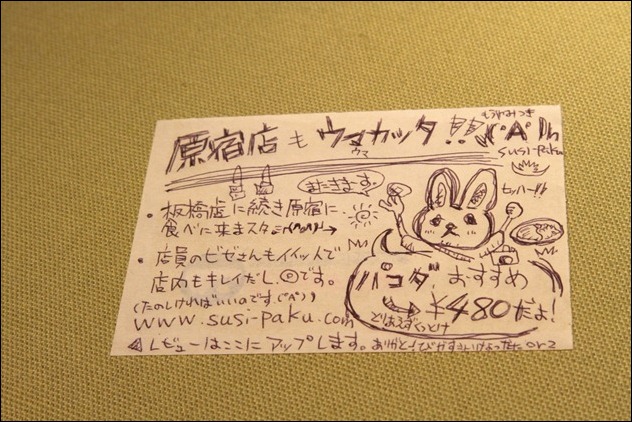 原宿店もウマカッタ!!
ウマ
(°A°)
susi-Paku
またきます。
ヒッハー!!
・板橋店に続き原宿に
食べに来まスタ
・店員のビゼさんもイイッ!で
店内もキレイだし、◎です。
(たのしければいいのです(°A°))
www.susi-paku.com
パコダ、おすすめ
¥480だよ!
とりあえずくっとけ
◁レビューはここにアップします。
ありがとう orz